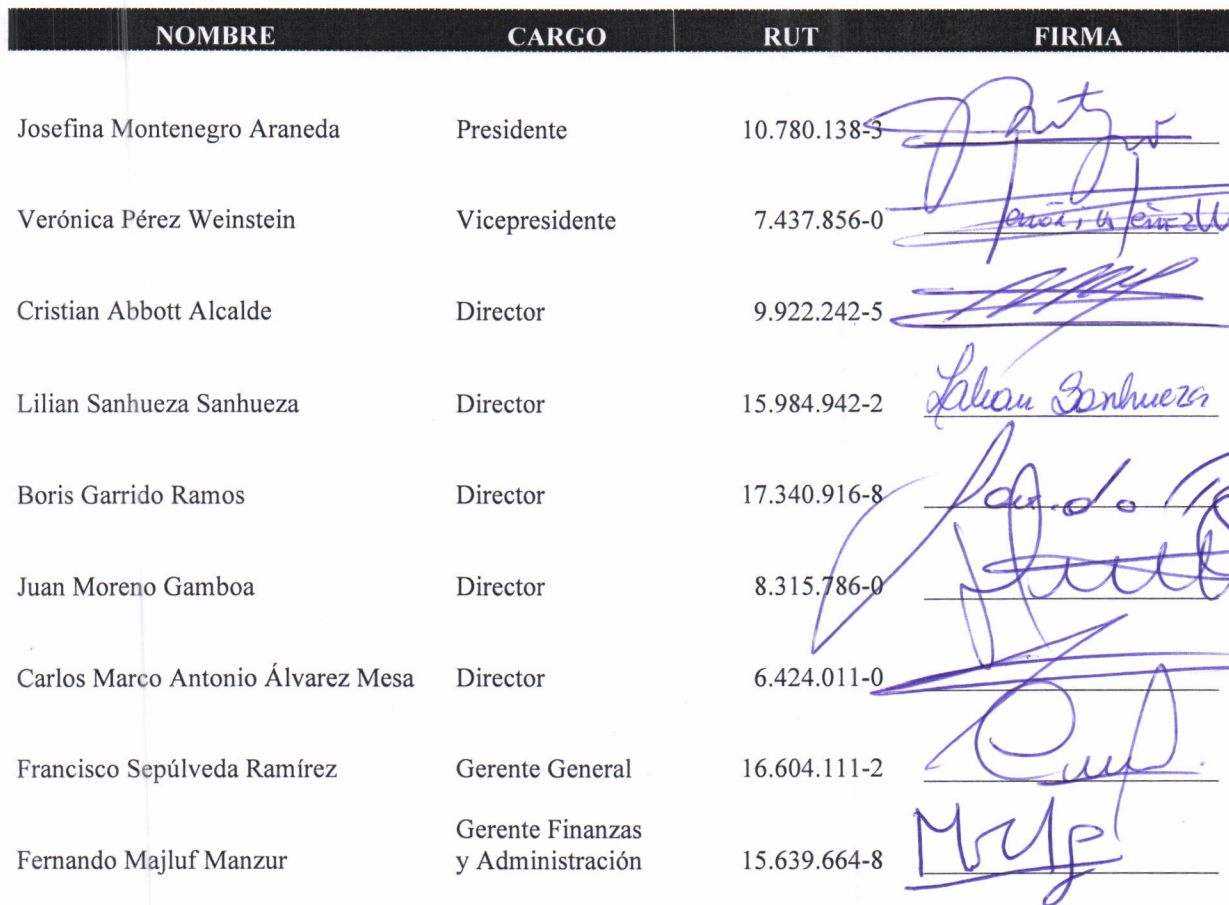 NOMBRE CARGO RUT FIRMA
Josefina Montenegro Araneda Presidente 10.780.138-3
Verónica Pérez Weinstein Vicepresidente 7.437.856-0
Cristian Abbott Alcalde Director 9.922.242-5
Lilian Sanhueza Sanhueza Director 15.984.942-2 Sanhueza
Boris Garrido Ramos Director 17.340.916-8
Juan Moreno Gamboa Director 8.315.786-0
Carlos Marco Antonio Álvarez Mesa Director 6.424.011-0
Francisco Sepúlveda Ramírez Gerente General 16.604.111-2
Gerente Finanzas
Fernando Majluf Manzur y Administración 15.639.664-8